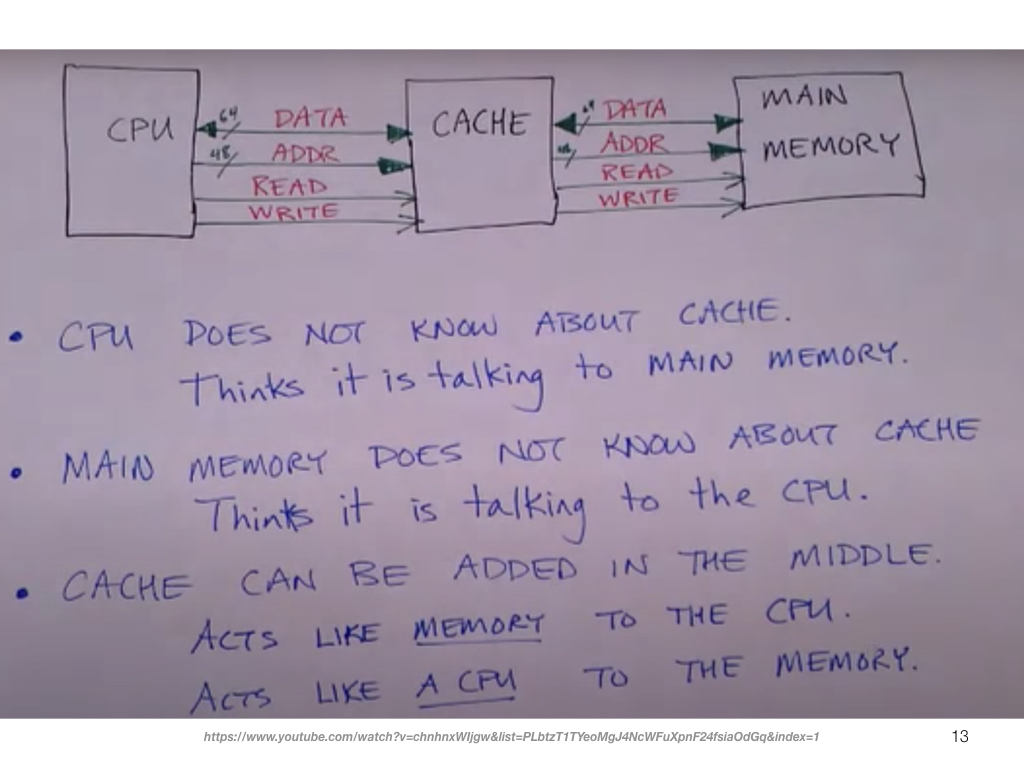 CPU
64 DATA
48 ADDR
READ
WRITE
CACHE
64 DATA
48 ADDR
READ
WRITE
MAIN
MEMORY
• CPU DOES NOT KNOW ABOUT CACHE.
Thinks it is talking to MAIN MEMORY.
• MAIN MEMORY DOES NOT KNOW ABOUT CACHE
Thinks it is talking to the CPU.
• CACHE CAN BE ADDED IN THE MIDDLE.
ACTS LIKE MEMORY TO THE CPU.
ACTS LIKE A CPU TO THE MEMORY.
https://www.youtube.com/watch?v=chnhnxWIjgw&list=PLbtzT1TYeoMgJ4NcWFuXpnF24fsiaOdGq&index=1
13